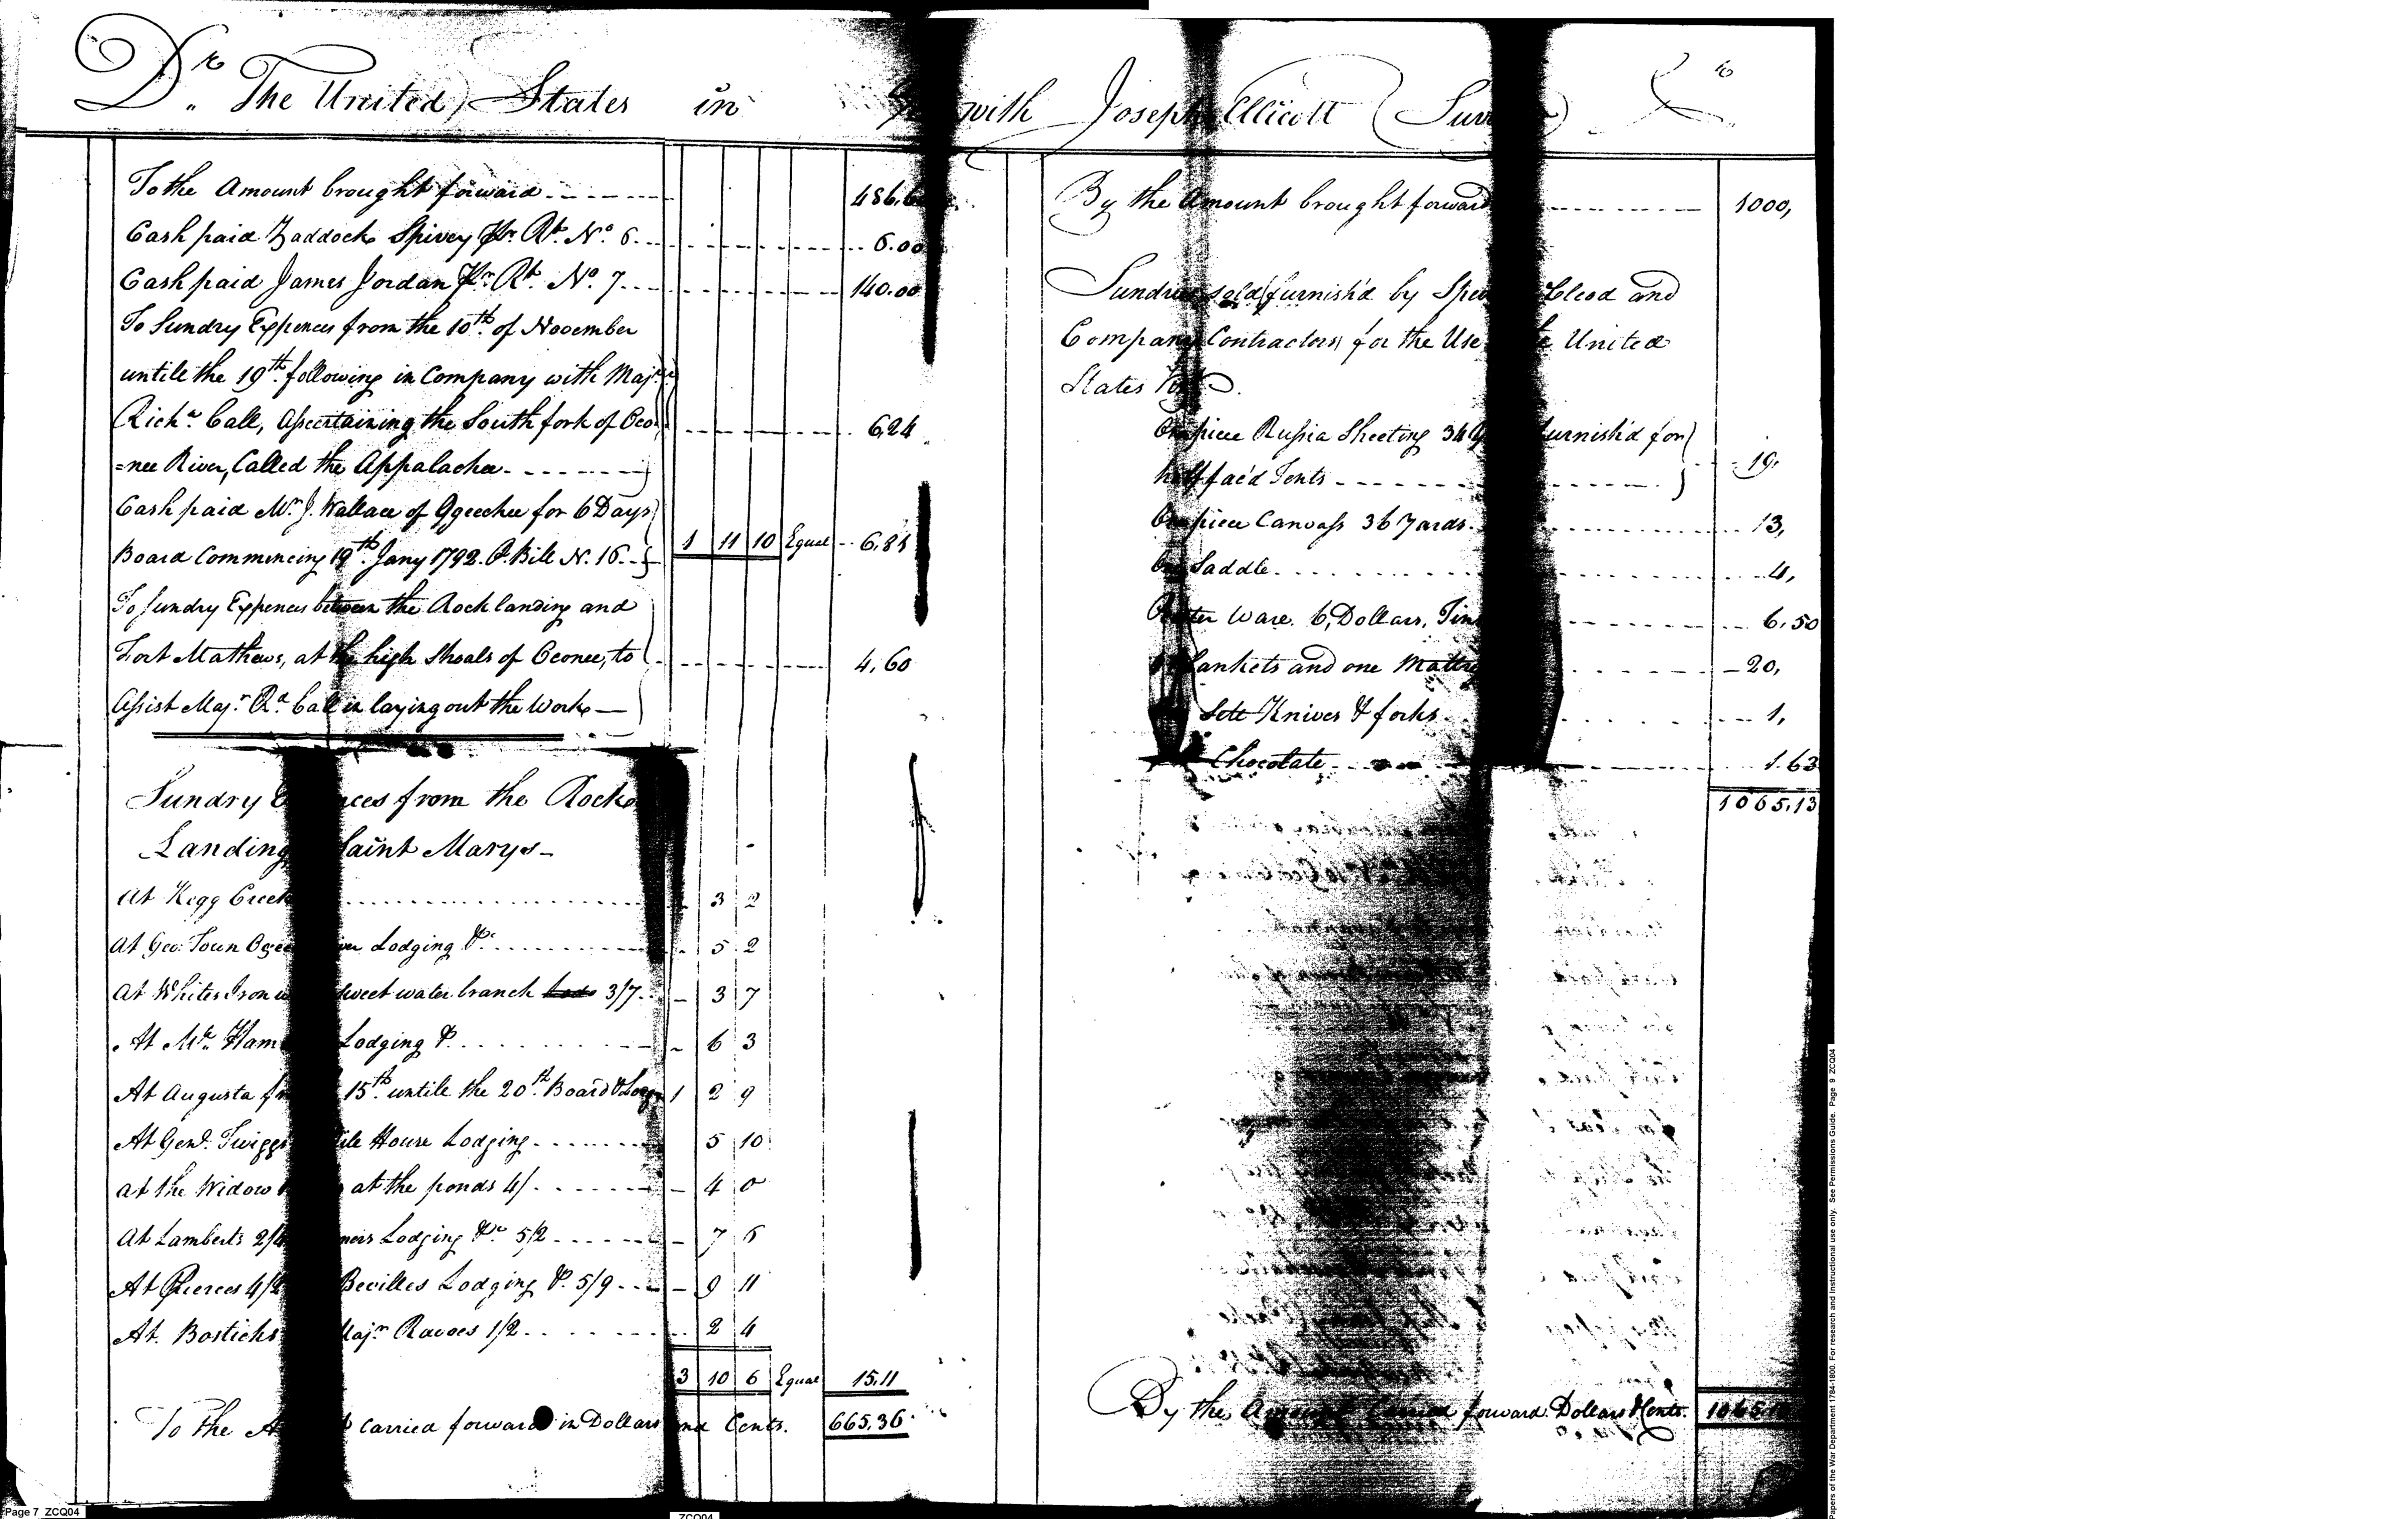 Dr. The United States in with Joseph Ellicott
To the Amount brought forward
Cash paid Zaddock Spivey Pr. Rt. No. 6 6.00
Cash paid James Jordan Pr. Rt. No. 7 140.00
To Sundry Expences from the 10th of November
untile the 19th following in Company with Majr
Richd Call, Ascertaining the South fork of Oco
=nee River, Called the Appalachee 6,24
Cash paid Mr. J. Wallace of Ogeechee for 6 Days
Board Commencing 19th Jany 1792. P. Bill N. 16 1 11 10 Equal
To Sundry Expences between the Rock landing and
Fort Mathews, at the high Shoals of Oconee, to 4,60
Assist Majr Rd. Call in laying out the Works
Sundry from the Rock
Landing Saint Marys
At Kegg Creek 3 2
At Geo: Town Lodging &c 5 2
At Whites sweet water branch 3/7 3 7
At Mr. Lodging &c 6 3
At Augusta 15th untile the 20th Board & 1 2 9
At Genl. Twiggs House Lodging 5 10
at the Widow at the ponds 4/ 4 0
At Lamberts Lodging &c 5/2 7 6
At Pierces 4/2 Bevilles Lodging &c. 5/9 9 11
At Bosticks Majr 1/2 2 4
3 10 6 Equal 15.11
To the carried forward in Dollars and Cents. 665.36
By the Amount brought forward 1000,
Sundries sold furnish'd by and
Company Contractors for the Use United
States
piece Russia Sheeting furnish'd for
half fac'd Tents 19,
piece Canvass 36 Yards 13,
Saddle 4,
Ware. 6, Dollars, 6.50
Blankets and one 20,
Sett Knives & forks 1,
Chocolate 1.63
1065.13
By the Amount forward Dollars & Cents.
Page 7 ZCQ04
ZCQ04
Papers of the War Department 1784-1800. For research and instructional use only. See Permissions Guide. Page 9 ZCQ04